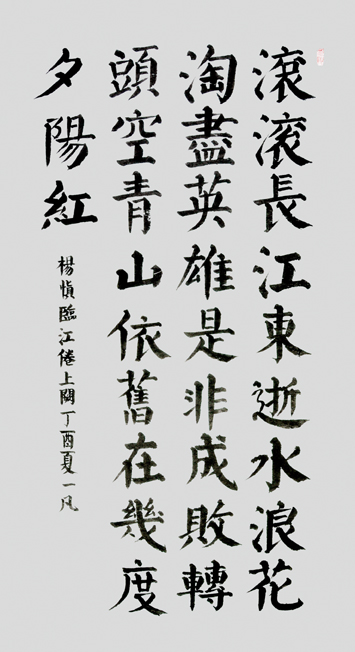 滾滚長江東逝水浪花
淘盡英雄是非成敗轉
頭空青山依舊在幾度
夕陽紅
楊慎臨江倦上闋丁酉夏一凡